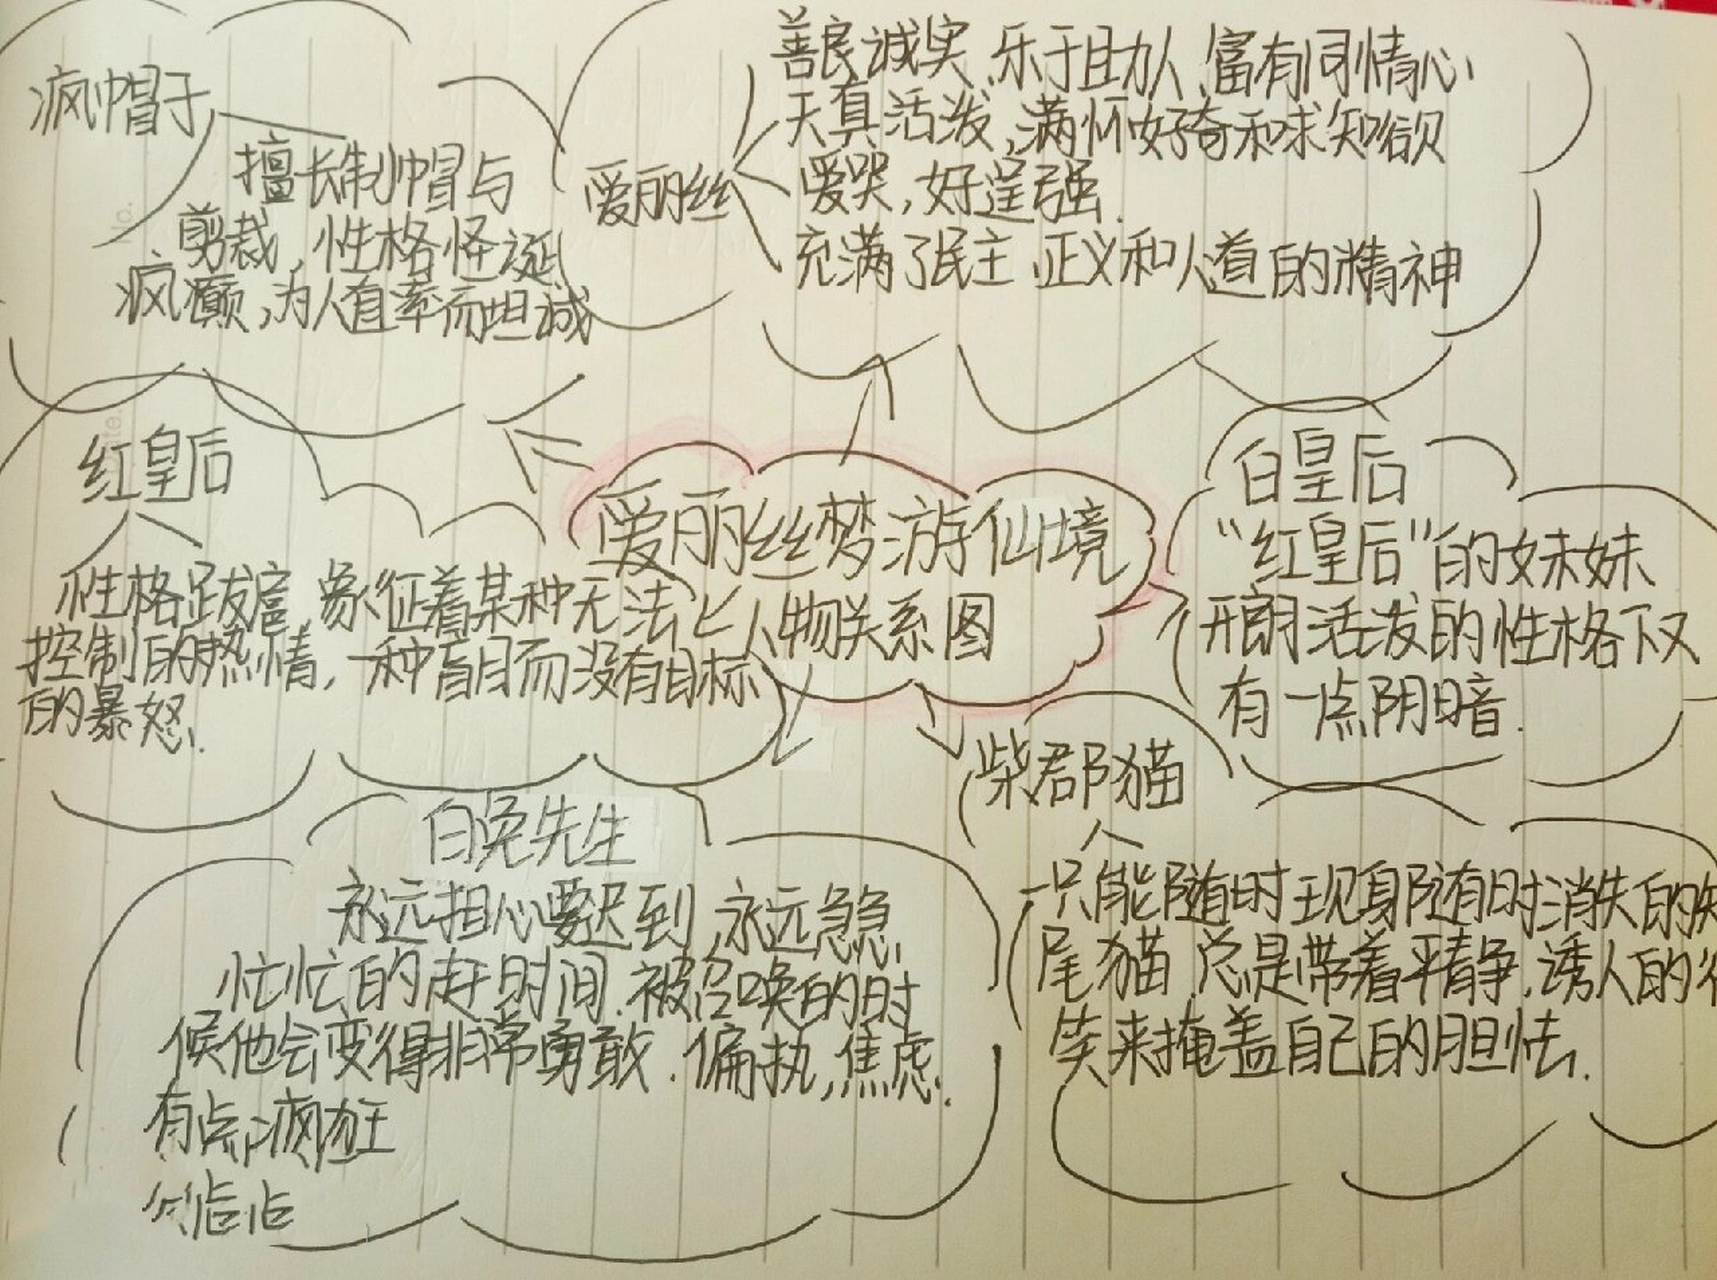 疯帽子
擅长制帽与
剪裁,性格怪诞
疯癫,为人直率而坦诚
爱丽丝
善良诚实、乐于助人,富有同情心
天真活泼,满怀好奇和求知欲
爱哭,好逞强.
充满了民主 正义和人道的精神
红皇后
性格跋扈,象征着某种无法
控制的热情,一种盲目而没有目标
的暴怒.
爱丽丝梦游仙境
人物关系图
白皇后
“红皇后”的妹妹
开朗活泼的性格下又
有一点阴暗.
白兔先生
永远担心要迟到,永远急急
忙忙的赶时间.被召唤的时
候他会变得非常勇敢.偏执,焦虑.
有点疯狂
柴郡猫
一只能随时现身随时消失的短
尾猫 总是带着平静,诱人的
笑来掩盖自己的胆怯.